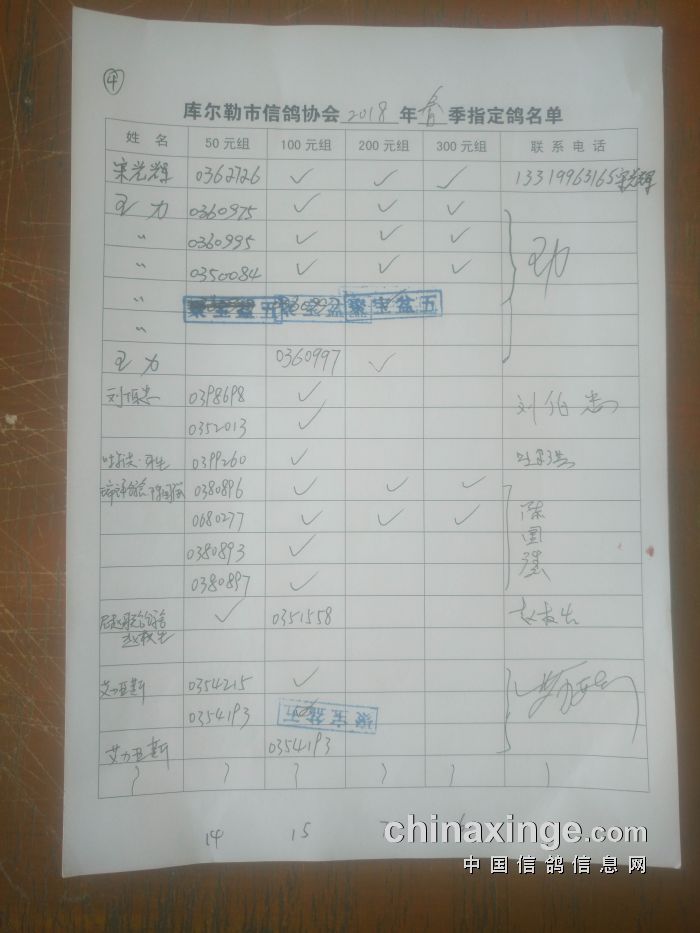 ④
库尔勒市信鸽协会 2018 年 春 季指定鸽名单
姓 名 50元组 100元组 200元组 300元组 联系电话
宋光辉 0362726 ✓ ✓ ✓ 13319963165 宋光辉
王力 0360975 ✓ ✓ ✓
〃 0360995 ✓ ✓ ✓ 王力
〃 0350084 ✓ ✓ ✓
〃 聚宝盆五 聚宝盆 聚宝盆五
〃
王力 0360997 ✓
刘伯忠 0398698 ✓ 刘伯忠
0352013 ✓
0399260 ✓
陈国强 0380896 ✓ ✓ ✓ 陈国强
0680277 ✓ ✓ ✓
0380893 ✓
0380897 ✓
✓ 0351558
艾力亚斯 0354215 ✓
0354193 聚宝盆五
艾力亚斯 0354193
14 15
chinaxinge.com
中国信鸽信息网